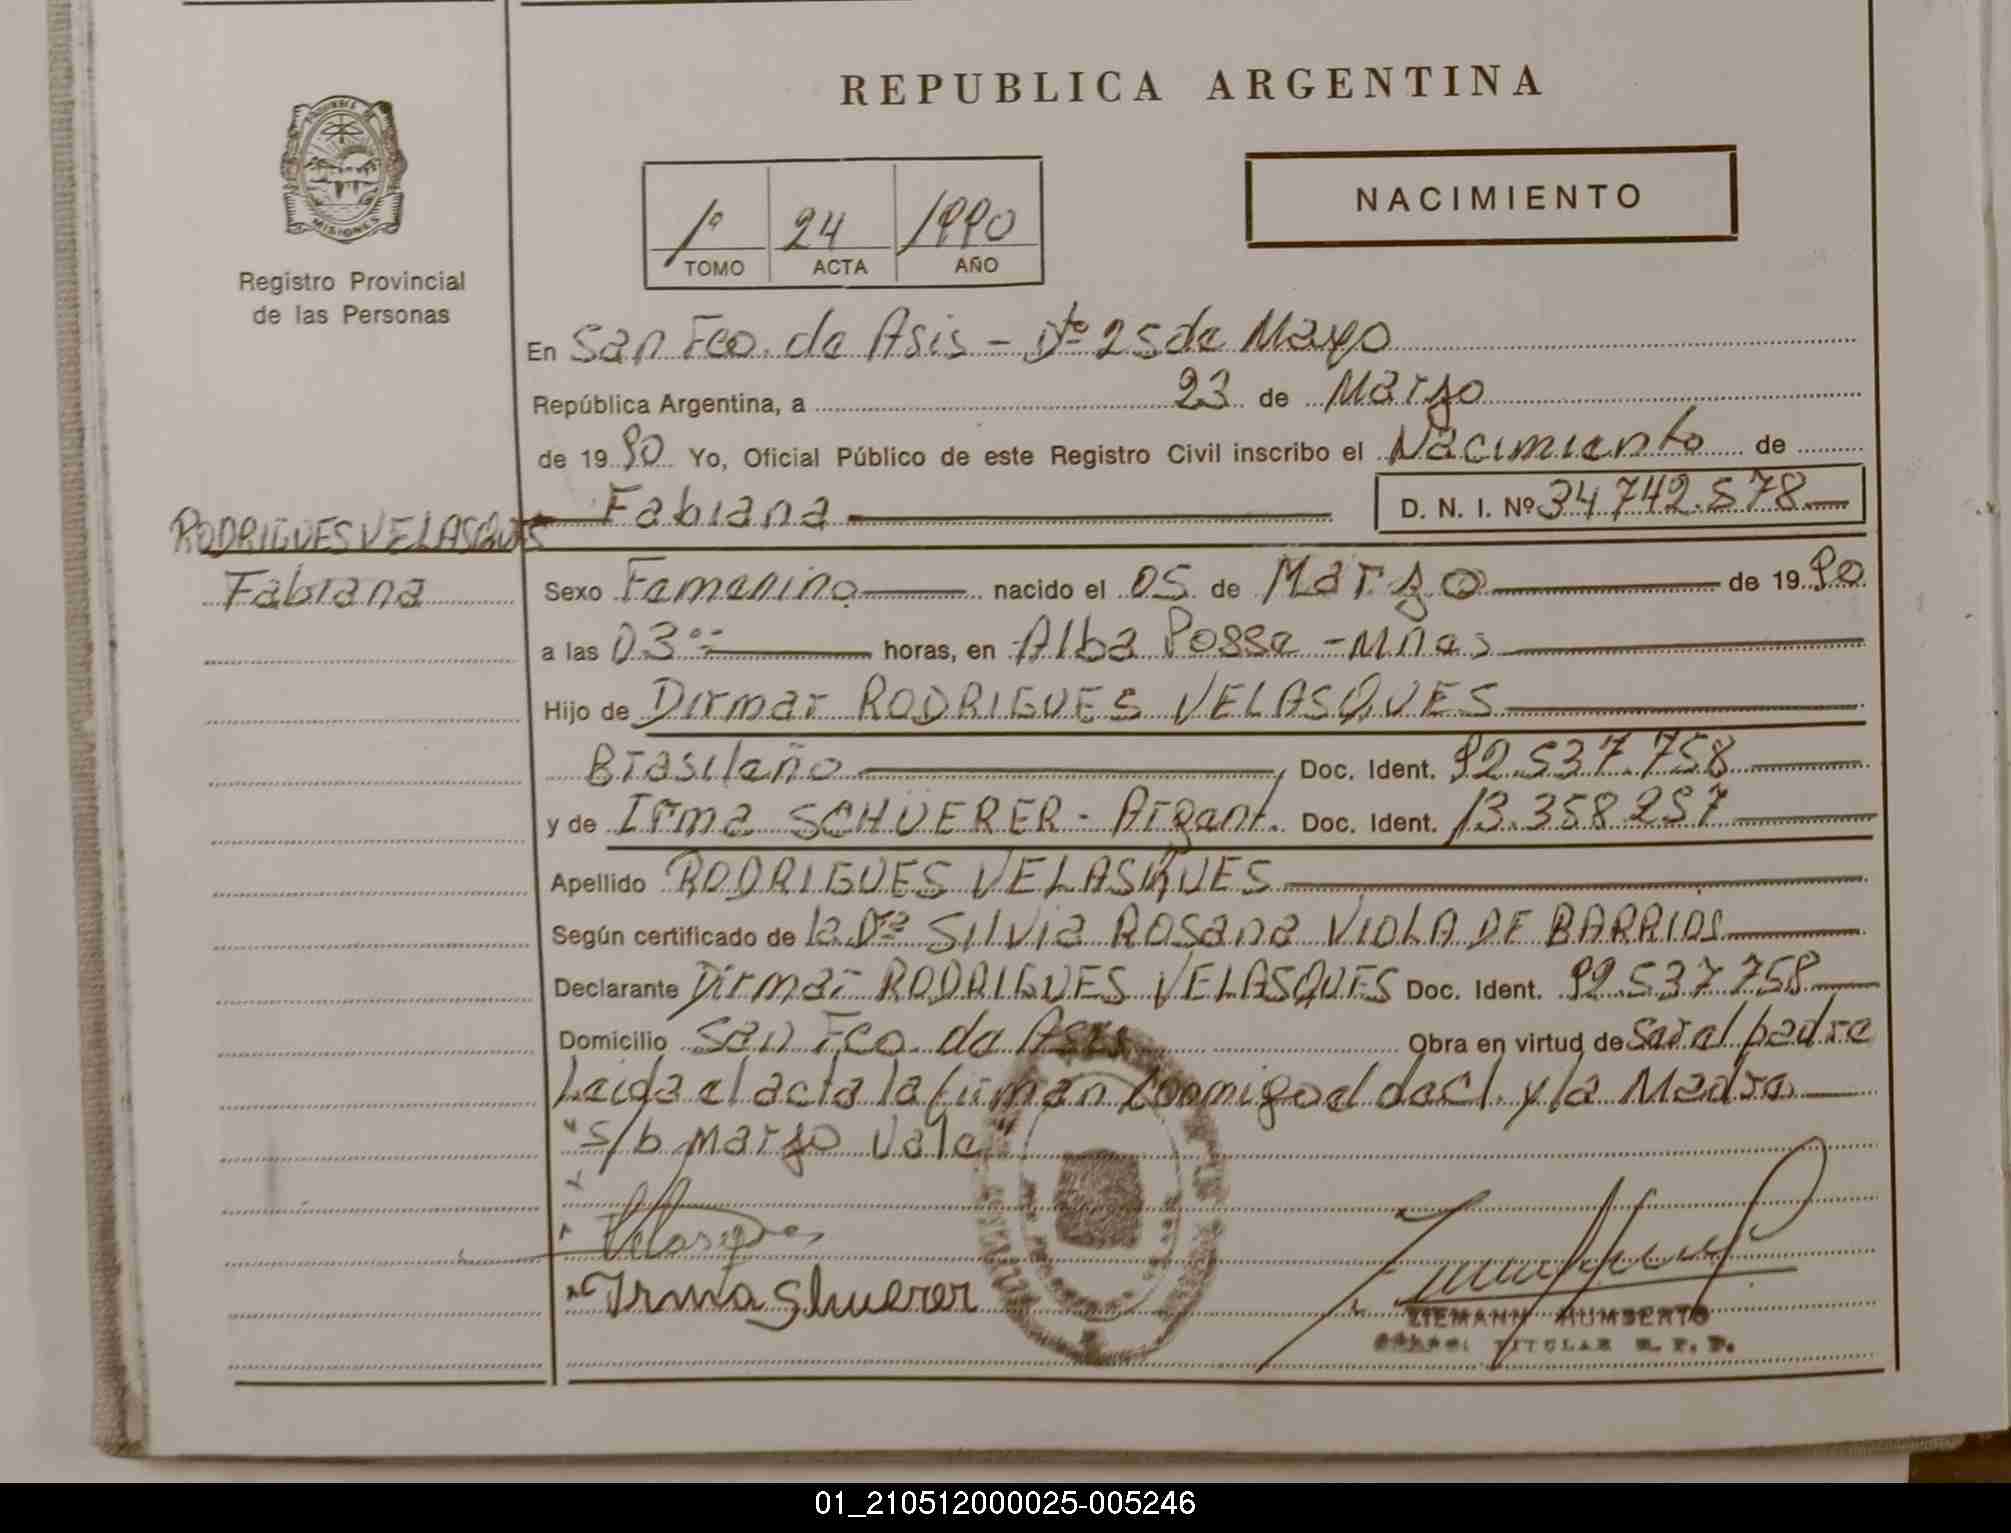 REPUBLICA ARGENTINA
PROVINCIA DE
MISIONES
Registro Provincial
de las Personas
1º 24 1990
TOMO ACTA AÑO
NACIMIENTO
En San Fco. de Asis - Dto 25 de Mayo
República Argentina, a 23 de Marzo
de 1990 Yo, Oficial Público de este Registro Civil inscribo el Nacimiento de
Fabiana D. N. I. Nº 34.742.578
RODRIGUES VELASQUES
Fabiana
Sexo Femenino nacido el 05 de Marzo de 1990
a las 03 horas, en Alba Posse - Mnes
Hijo de Dirmar RODRIGUES VELASQUES
Brasileño Doc. Ident. 92.537.758
y de Irma SCHÜERER - Argent. Doc. Ident. 13.358.257
Apellido RODRIGUES VELASQUES
Según certificado de la Dra Silvia Rosana VIOLA DE BARRIOS
Declarante Dirmar RODRIGUES VELASQUES Doc. Ident. 92.537.758
Domicilio San Fco. de Asis Obra en virtud de Ser el padre
Leida el acta la firman conmigo el decl. y la Madre
"s/b Marzo Vale"
Velasques
Irma Shuerer
ZIEMANN HUMBERTO
TITULAR R. P. P.
01_210512000025-005246